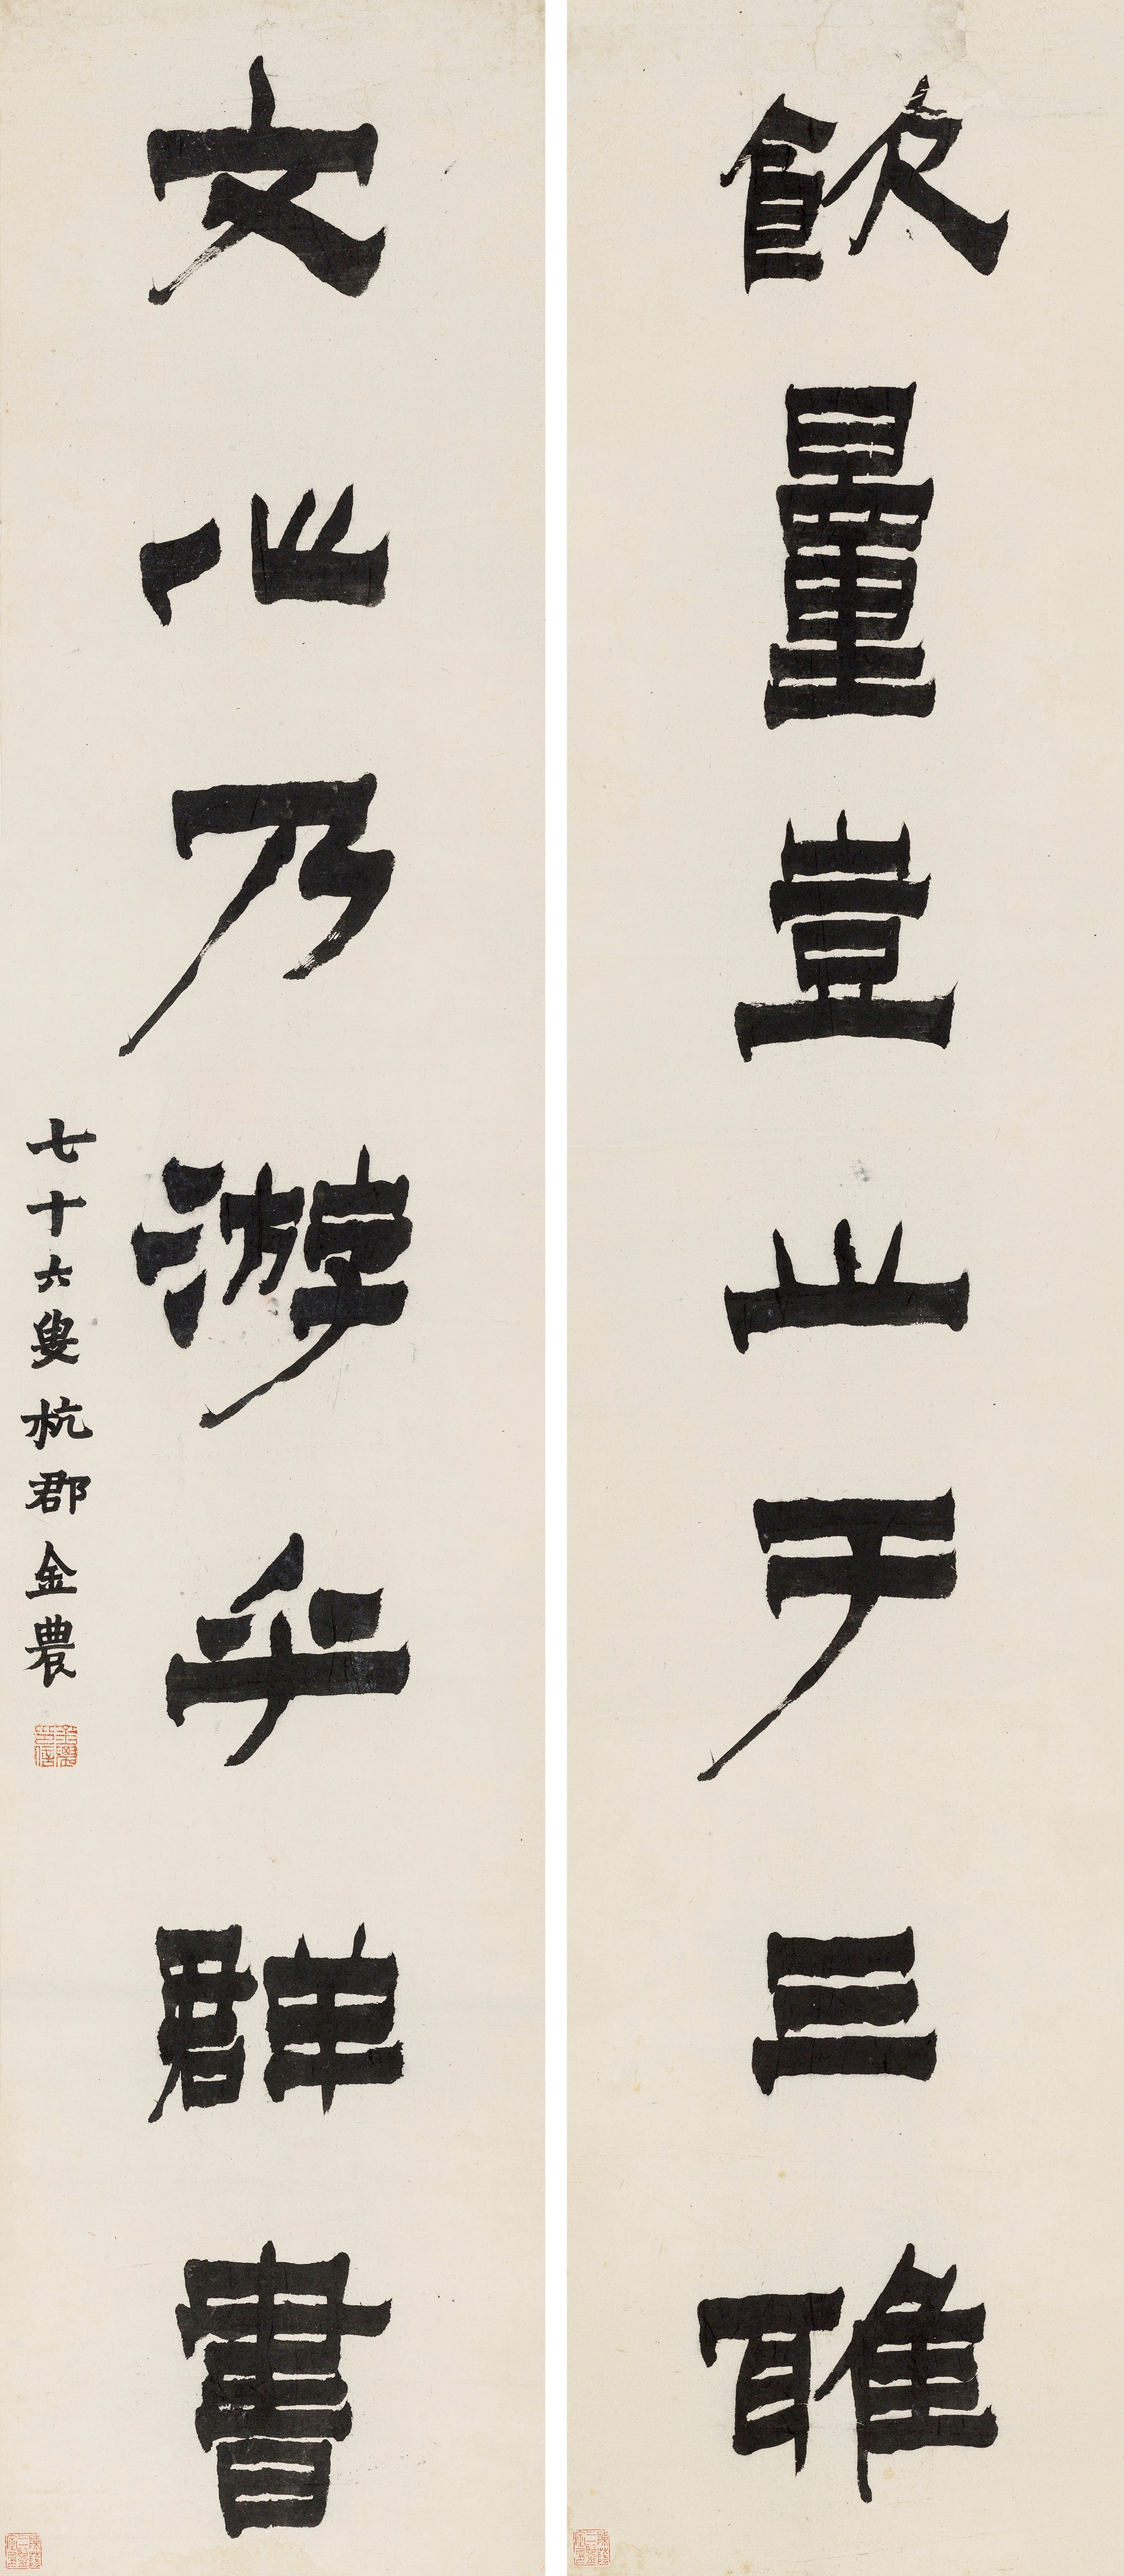 飲量豈止于三雅
文心乃游乎群書
七十六叟杭郡金農
金農印信